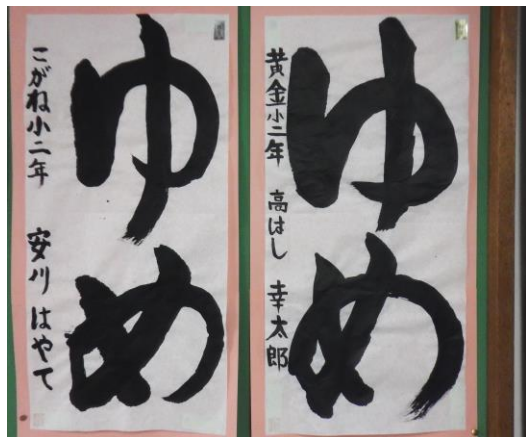 ゆめ
黄金小二年 高はし 幸太郎
ゆめ
こがね小二年 安川 はやて